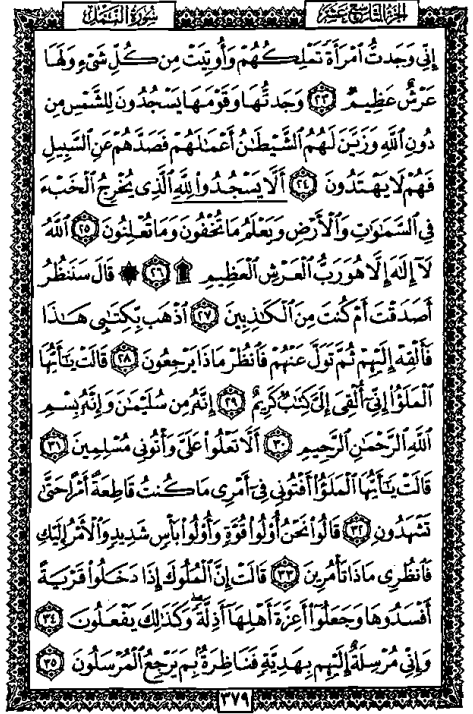 الجزء التاسع عشر
سورة النمل
إِنِّى وَجَدتُّ ٱمْرَأَةً تَمْلِكُهُمْ وَأُوتِيَتْ مِن كُلِّ شَىْءٍ وَلَهَا
عَرْشٌ عَظِيمٌ ٢٣ وَجَدتُّهَا وَقَوْمَهَا يَسْجُدُونَ لِلشَّمْسِ مِن
دُونِ ٱللَّهِ وَزَيَّنَ لَهُمُ ٱلشَّيْطَٰنُ أَعْمَٰلَهُمْ فَصَدَّهُمْ عَنِ ٱلسَّبِيلِ
فَهُمْ لَا يَهْتَدُونَ ٢٤ أَلَّا يَسْجُدُوا۟ لِلَّهِ ٱلَّذِى يُخْرِجُ ٱلْخَبْءَ
فِى ٱلسَّمَٰوَٰتِ وَٱلْأَرْضِ وَيَعْلَمُ مَا تُخْفُونَ وَمَا تُعْلِنُونَ ٢٥ ٱللَّهُ
لَآ إِلَٰهَ إِلَّا هُوَ رَبُّ ٱلْعَرْشِ ٱلْعَظِيمِ ۩ ٢٦ ۞ قَالَ سَنَنظُرُ
أَصَدَقْتَ أَمْ كُنتَ مِنَ ٱلْكَٰذِبِينَ ٢٧ ٱذْهَب بِّكِتَٰبِى هَٰذَا
فَأَلْقِهْ إِلَيْهِمْ ثُمَّ تَوَلَّ عَنْهُمْ فَٱنظُرْ مَاذَا يَرْجِعُونَ ٢٨ قَالَتْ يَٰٓأَيُّهَا
ٱلْمَلَؤُا۟ إِنِّىٓ أُلْقِىَ إِلَىَّ كِتَٰبٌ كَرِيمٌ ٢٩ إِنَّهُۥ مِن سُلَيْمَٰنَ وَإِنَّهُۥ بِسْمِ
ٱللَّهِ ٱلرَّحْمَٰنِ ٱلرَّحِيمِ ٣٠ أَلَّا تَعْلُوا۟ عَلَىَّ وَأْتُونِى مُسْلِمِينَ ٣١
قَالَتْ يَٰٓأَيُّهَا ٱلْمَلَؤُا۟ أَفْتُونِى فِىٓ أَمْرِى مَا كُنتُ قَاطِعَةً أَمْرًا حَتَّىٰ
تَشْهَدُونِ ٣٢ قَالُوا۟ نَحْنُ أُو۟لُوا۟ قُوَّةٍ وَأُو۟لُوا۟ بَأْسٍ شَدِيدٍ وَٱلْأَمْرُ إِلَيْكِ
فَٱنظُرِى مَاذَا تَأْمُرِينَ ٣٣ قَالَتْ إِنَّ ٱلْمُلُوكَ إِذَا دَخَلُوا۟ قَرْيَةً
أَفْسَدُوهَا وَجَعَلُوٓا۟ أَعِزَّةَ أَهْلِهَآ أَذِلَّةً ۖ وَكَذَٰلِكَ يَفْعَلُونَ ٣٤
وَإِنِّى مُرْسِلَةٌ إِلَيْهِم بِهَدِيَّةٍ فَنَاظِرَةٌۢ بِمَ يَرْجِعُ ٱلْمُرْسَلُونَ ٣٥
٣٧٩